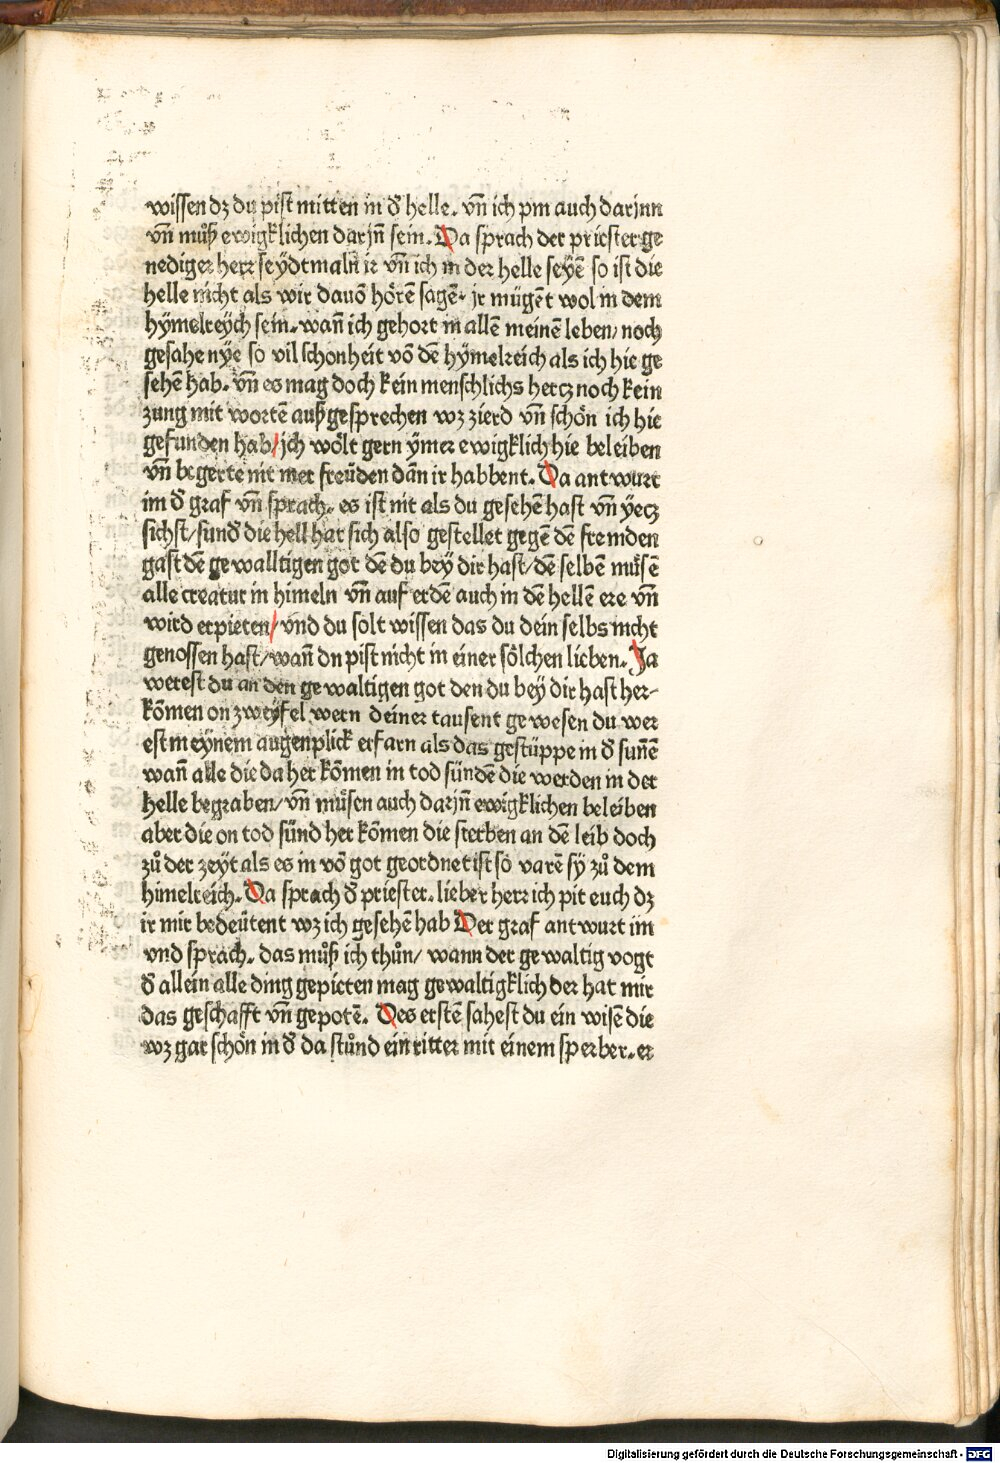 wissen dz du pist mitten in đ helle. vn̄ ich pm auch darjnn
vn̄ můß ewigklichen darjn̄ sein. Da sprach der priester ge
nediger herr seÿdtmaln ir vn̄ ich in der helle seyē so ist die
helle nicht als wir dauō hörē sagē. jr mügēt wol in dem
hÿmelreÿch sein. wan̄ ich gehort in allē meinē leben/ noch
gesahe nÿe so vil schonheit vō dē hÿmelreich als ich hie ge
sehē hab. vn̄ es mag doch kein menschlichs hercz noch kein
zung mit wortē außgesprechen wz zierd vn̄ schön ich hie
gefunden hab/ jch wölt gern ÿmer ewigklich hie beleiben
vn̄ begerte nit mer freüden dān ir habbent. Da antwurt
im đ graf vn̄ sprach. es ist nit als du gesehē hast vn̄ yecz
sichst/ sunđ die hell hat sich also gestellet gegē dē fremden
gast dē gewalltigen got dē du bey dir hast/ dē selbē můsē
alle creatur in himeln vn̄ auf erdē auch in dē hellē ere vn̄
wird erpieten/ vnd du solt wissen das du dein selbs nicht
genossen hast/ wan̄ dn pist nicht in einer sölchen lieben. Ja
werest du an den gewaltigen got den du beÿ dir hast her-
kōmen on zweyfel wern deiner tausent gewesen du wer
est in eÿnem augenplick erfarn als das gestüppe in đ sun̄ē
wan̄ alle die da her kōmen in tod sündē die werden in der
helle begraben/ vn̄ müsen auch darjn̄ ewigklichen beleiben
aber die on tod sünd her kōmen die sterben an dē leib doch
zů der zeyt als es in vō got geordnet ist so varē sÿ zů dem
himelreich. Da sprach đ priester. lieber herr ich pit euch dz
ir mir bedeütent wz ich gesehē hab Der graf antwurt im
vnd sprach. das můß ich thůn/ wann der gewaltig vogt
đ allein alle ding gepieten mag gewaltigklich der hat mir
das geschafft vn̄ gepotē. Des erstē sahest du ein wisē die
wz gar schön in đ da stůnd ein ritter mit einem sperber. er
Digitalisierung gefördert durch die Deutsche Forschungsgemeinschaft - DFG